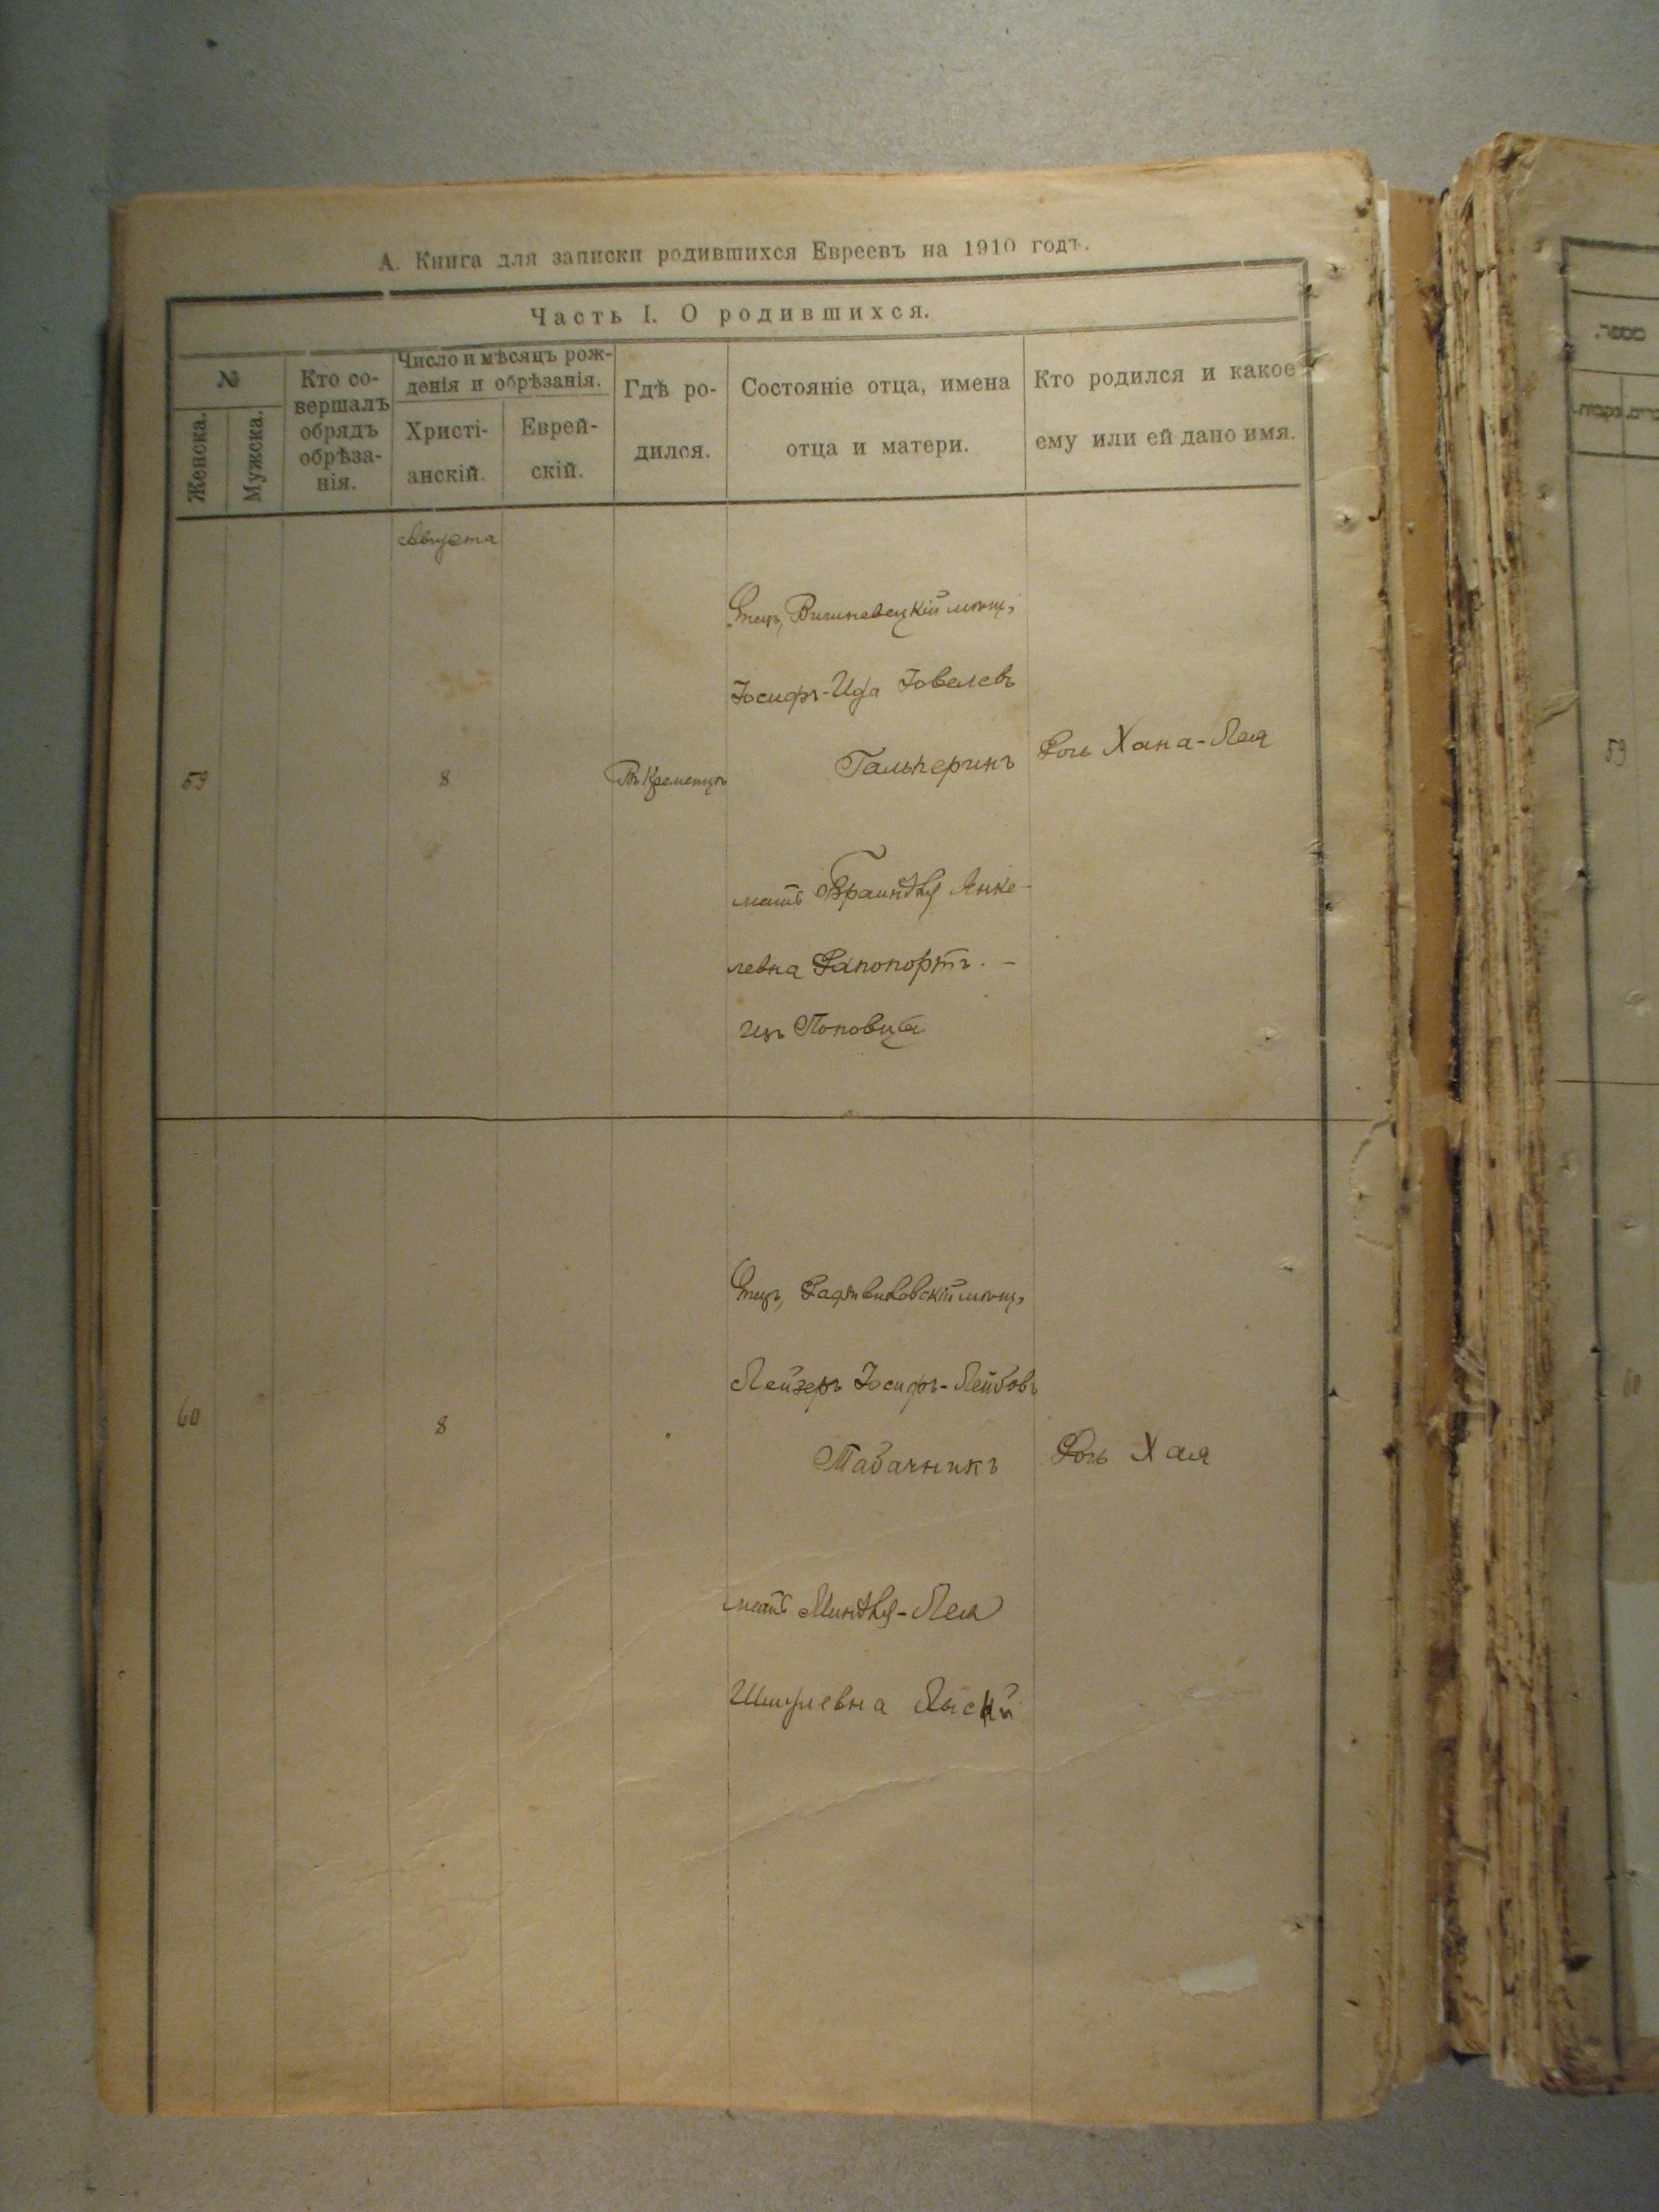 А. Книга для записки родившихся Евреевъ на 1910 годъ.
Часть I. О родившихся.
№
Женска.
Мужска.
Кто со-
вершалъ
обрядъ
обрѣза-
нія.
Число и мѣсяцъ рож-
денія и обрѣзанія.
Христі-
анскій.
Еврей-
скій.
Гдѣ ро-
дился.
Состояніе отца, имена
отца и матери.
Кто родился и какое
ему или ей дано имя.
Августа
59
8
Въ Кременцѣ
Отецъ, Вишневецкій мѣщ,
Іосифъ-Ида Іовелевъ
Гальперинъ
мать Браиндля Янке-
левна Рапопортъ. -
изъ
Дочь Хана-Лея
60
8
Отецъ, Радзивиловскій мѣщ,
Лейзеръ Іосифъ-Лейбовъ
Табачникъ
мать Миндля-Лея
Шмулевна
Дочь Хая
59
60